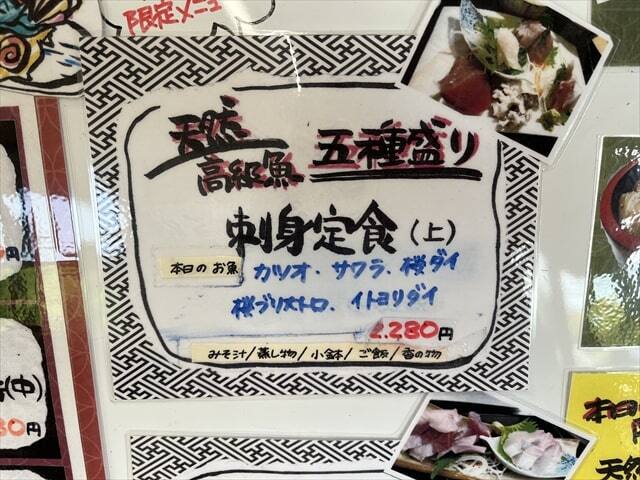 限定メニュ
天然
高級魚 五種盛り
刺身定食(上)
本日のお魚 カツオ、サワラ、桜ダイ
桜ブリストロ、イトヨリダイ
2.280円
みそ汁/蒸し物/小鉢/ご飯/香の物
(中)
80円
円
本日
天然